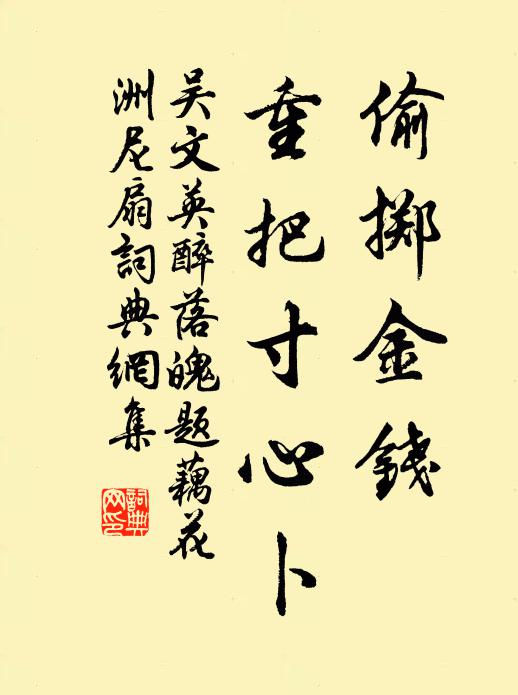 偷擲金錢
重把寸心卜
吴文英醉落魄題藕花
洲尼扇詞典網集
詞典
网印